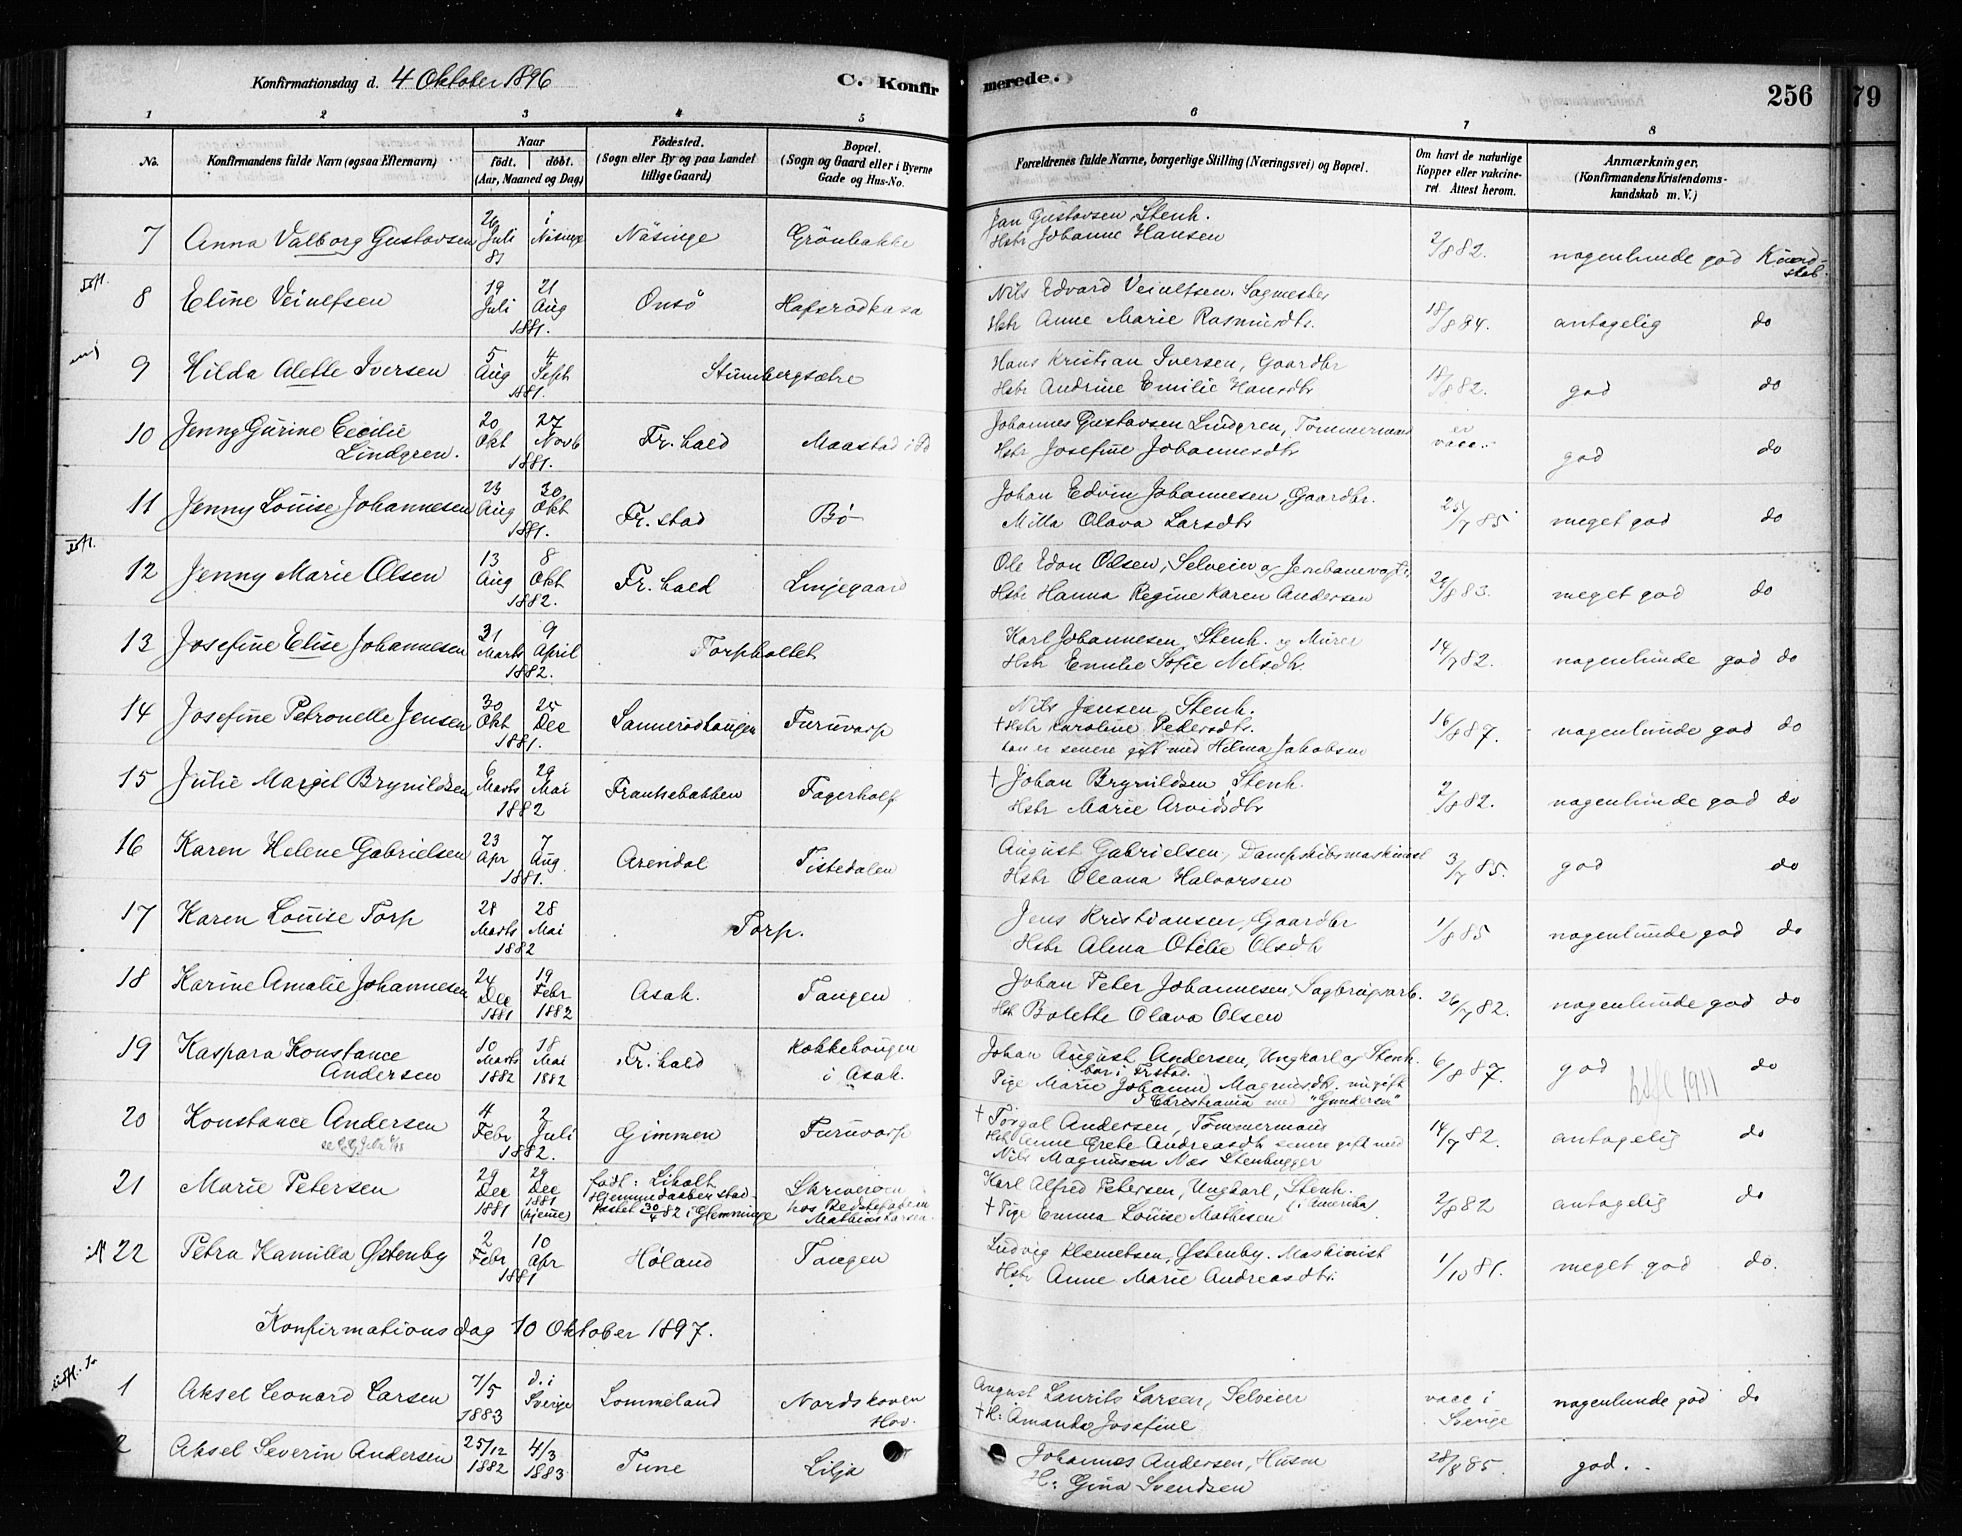 Konfirmationsdag d. 4 Oktober 1896
C. Konfir
merede.
256
79
1 2 3 4 5 6 7 8
No.
Konfirmandens fulde Navn (ogsaa Efternavn)
Naar
født. døbt.
(Aar, Maaned og Dag)
Fødested.
(Sogn eller By og paa Landet
tillige Gaard)
Bopæl.
(Sogn og Gaard eller i Byerne
Gade og Hus-No.
Forældrenes fulde Navne, borgerlige Stilling (Næringsvei) og Bopæl.
Om havt de naturlige
Kopper eller vakcine-
ret. Attest herom.
Anmærkninger.
(Konfirmandens Kristendoms-
kundskab m. V.)
7 Anna Valborg Gustavsen 26 Juli 81 i Näsinge Näsinge Grönbakke
Jan Gustavsen, Stenh.
Hstr Johanne Hansen 2/8 82. nogenlunde god Kund-
skab.
8 Eline Veiulfsen 19 Juli 21 Aug 1881. Onsö Hafsrödkasa
Nils Edvard Veiulfsen. Sagmester
Hstr Anne Marie Rasmusdtr. 18/8 84. antagelig do
9 Hilda Alette Iversen 5 Aug 4 Sept 1881. Stumbergsætre
Hans Kristian Iversen, Gaardbr
Hstr Andrine Emilie Hansdtr 18/8 82. god do
10 Jenny Gurine Cecilie
Lindgren. 20 Okt 27 Novb 1881. Fr.hald Maastad i Id
Johannes Gustavsen Lindgren, Tømmermand
Hstr Josefine Johannesdtr ei
vacc. god do
11 Jenny Louise Johannesen 23 Aug 30 Okt 1881. Fr.stad Bø
Johan Edvin Johannesen, Gaardbr.
Milla Olava Larsdtr 25/7 85 meget god do
12 Jenny Marie Olsen 13 Aug 8 Okt 1882. Fr.hald Linjegaard
Ole Edon Olsen, Selveier og Jernbanevagt.
Hstr Hanna Regine Karen Andersen 29/8 83. meget god do
13 Josefine Elise Johannesen 31 Marts 9 April 1882. Torpholtet
Karl Johannesen, Stenh. og Murer
Hstr Emilie Sofie Nilsdtr 14/7 82. nogenlunde god do
14 Josefine Petronelle Jensen 30 Okt Dec 1881. Sannerödhaugen Furuvarp
Nils Jensen, Stenh.
† Hstr Karoline Pedersdtr.
han er senere gift med Helma Jakobsen 16/8 87. nogenlunde god do
15 Julie Margit Brynildsen 6 Marts 29 Mai 1882 Frantsebakken Fagerholt
† Johan Brynildsen, Stenh.
Hstr Marie Arvidsdtr 2/8 82. nogenlunde god do
16 Karen Helene Gabrielsen 23 Apr 7 Aug. 1881. Arendal Tistedalen
August Gabrielsen, Dampskibsmaskinist
Hstr Oleana Halvorsen 3/7 85. god do
17 Karen Louise Torp 28 Marts 28 Mai 1882 Torp.
Jens Kristiansen, Gaardbr
Hstr Alma Otilie Olsdtr 1/8 85 nogenlunde god do
18 Karine Amalie Johannesen 24 Dec 1881 19 Febr 1882 Asak. Tangen
Johan Peter Johannesen, Sagbrugsarb.
Hstr Bolette Olava Olsen 26/7 82. nogenlunde god do
19 Kaspara Konstance
Andersen 10 Marts 1882 18 Mai 1882 Fr.hald Kokkehaugen
i Asak.
Johan August Andersen, Ungkarl og Stenh.
bor i Fr.stad.
Pige Marie Johanne Magnusdtr. nu gift
i Christiania med "Gundersen" 6/8 87. god do
1911
20 Konstance Andersen 4 Febr 2 Juli 1882. Gimmen Furuvarp
† Torgal Andersen, Tømmermand
Hstr Anne Grete Andreasdtr senere gift med
Nils Magnusen Næs Stenhugger 14/7 82. antagelig do
21 Marie Petersen 29 Dec 1881 29 Dec 1881 (hjemme) født: Liholt
Hjemmedaaben stad-
fæstet 30/4 82 i Glemminge Skriverøen
hos Bedstefaderen
Mathias Larsen.
Karl Alfred Petersen, Ungkarl, Stenh.
(i Amerika)
† Pige Emma Louise Mathisen 2/8 82 antagelig do
22 Petra Kamilla Østenby 2 Febr 10 Apr 1881 Høland Tangen
Ludvig Klemetsen, Østenby. Maskinist
Hstr Anne Marie Andreasdtr. 1/10 81. meget god do.
Konfirmationsdag 10 Oktober 1897.
1 Aksel Leonard Larsen 7/5 1883 d. i Sverige Lommeland Nordskoven
Hov.
August Laurits Larsen, Selveier
† H: Amanda Josefine vacc i
Sverige nogenlunde god do
2 Aksel Severin Andersen 25/12 1882 4/3 1883 Tune Lilja
Johannes Andersen, Husm
H: Gina Svendsen 28/8 85. god.